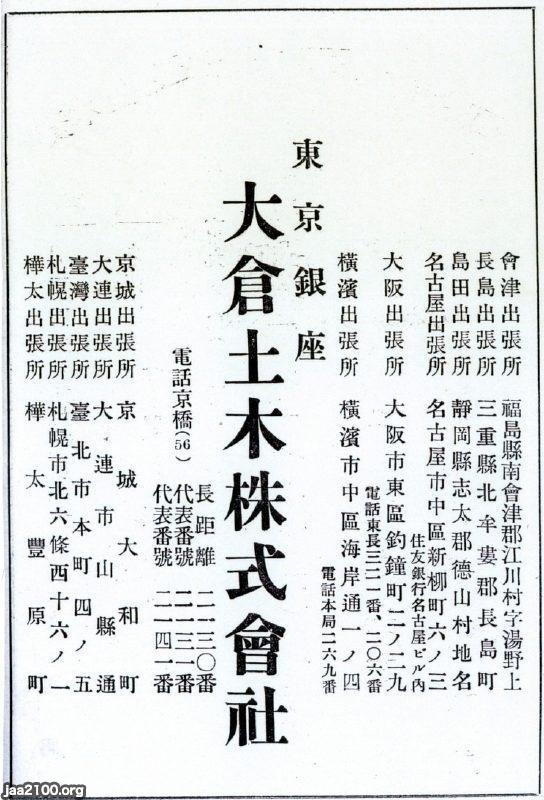 會津出張所　福島縣南會津郡江川村字湯野上
長島出張所　三重縣北牟婁郡長島町
島田出張所　靜岡縣志太郡德山村地名
名古屋出張所　名古屋市中區新柳町六ノ三
住友銀行名古屋ビル內
大阪出張所　大阪市東區釣鐘町二ノ二九
電話東長三二一番、二〇六番
橫濱出張所　橫濱市中區海岸通一ノ四
電話本局二六九番
東京銀座
大倉土木株式會社
電話京橋(56)
長距離　二一三〇番
代表番號　二一三一番
代表番號　二一四一番
京城出張所　京城大和町
大連出張所　大連市山縣通
臺灣出張所　臺北市本町四ノ五
札幌出張所　札幌市北六條西十六ノ一
樺太出張所　樺太豐原町
jaa2100.org